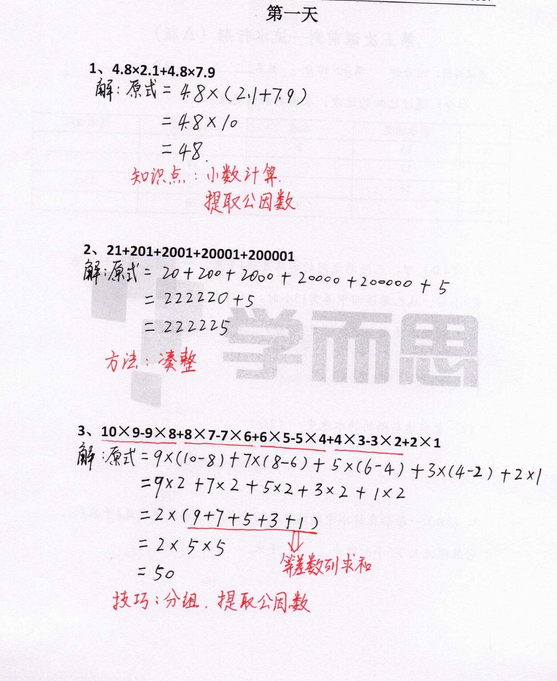 第一天
1、4.8×2.1+4.8×7.9
解:原式=4.8×(2.1+7.9)
=4.8×10
=48.
知识点:小数计算.
提取公因数
2、21+201+2001+20001+200001
解:原式=20+200+2000+20000+200000+5
=222220+5
=222225
学而思
方法:凑整
3、10×9-9×8+8×7-7×6+6×5-5×4+4×3-3×2+2×1
解:原式=9×(10-8)+7×(8-6)+5×(6-4)+3×(4-2)+2×1
=9×2+7×2+5×2+3×2+1×2
=2×(9+7+5+3+1)
=2×5×5
等差数列求和
=50
技巧:分组.提取公因数